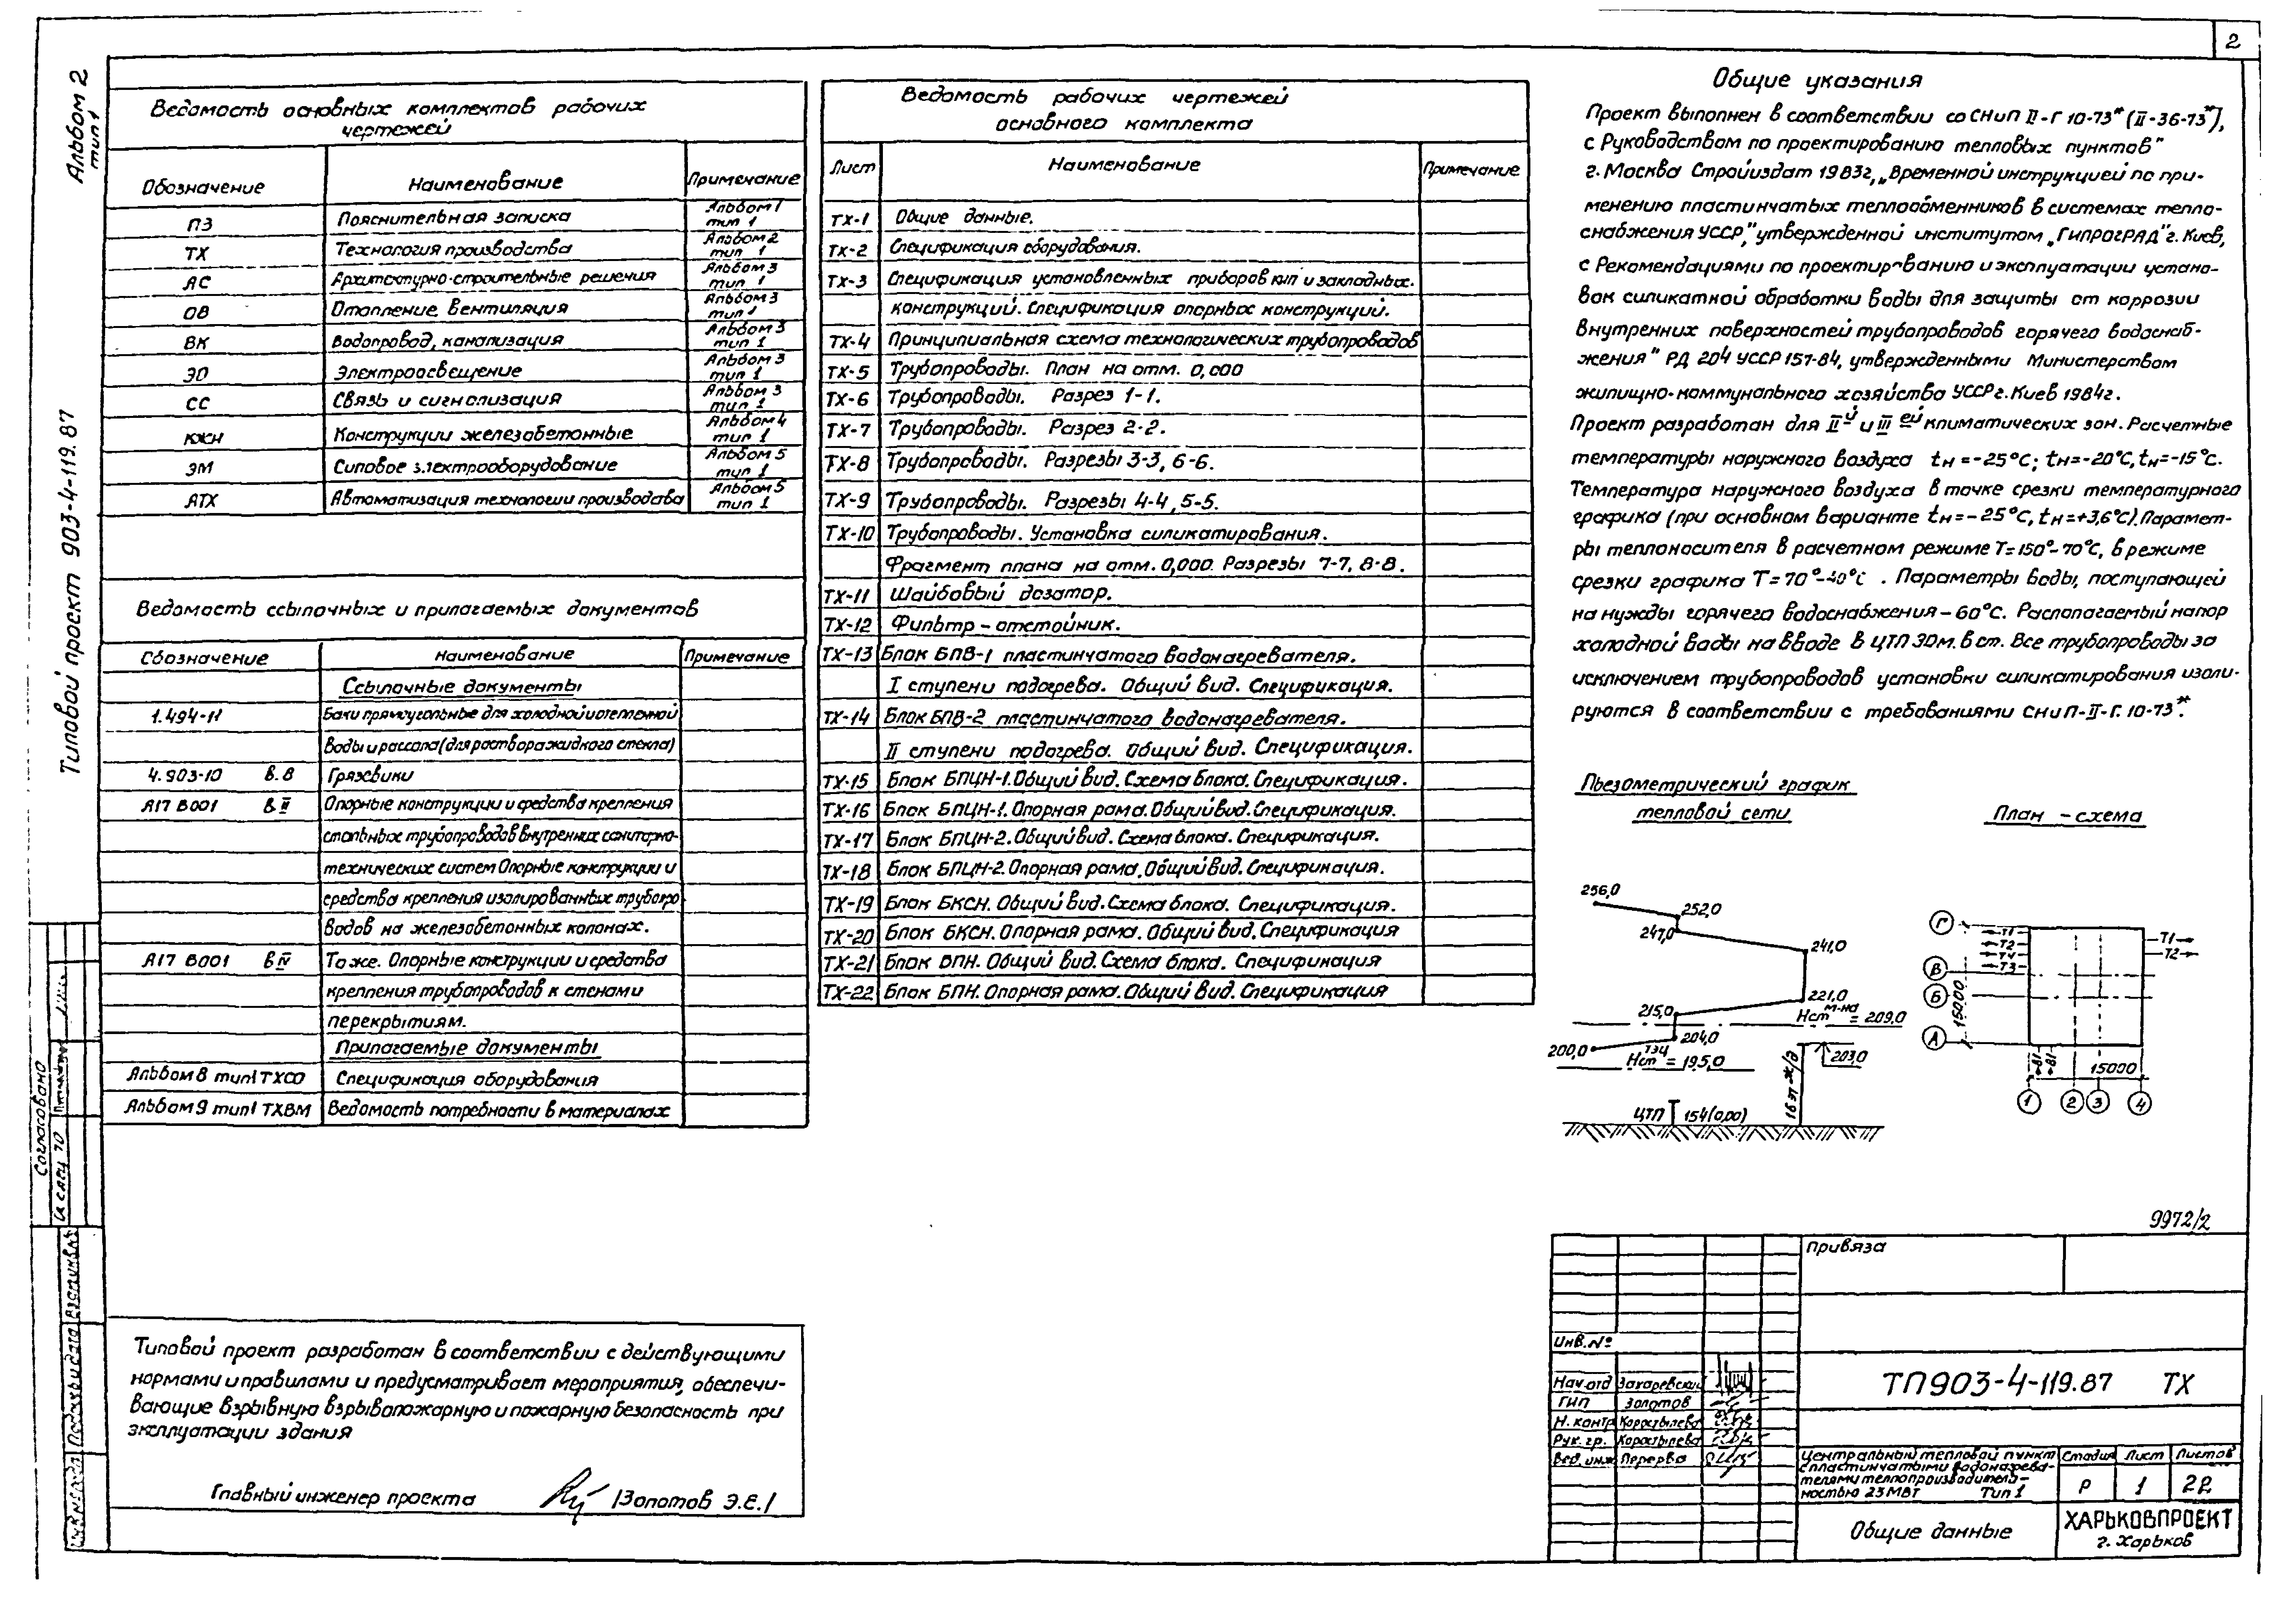 2
Альбом 2
тип 1
Типовой проект 903-4-119.87
Ведомость основных комплектов рабочих
чертежей
Обозначение Наименование Примечание
ПЗ Пояснительная записка Альбом 1 тип 1
ТХ Технология производства Альбом 2 тип 1
АС Архитектурно-строительные решения Альбом 3 тип 1
ОВ Отопление, вентиляция Альбом 3 тип 1
ВК Водопровод, канализация Альбом 3 тип 1
ЭО Электроосвещение Альбом 3 тип 1
СС Связь и сигнализация Альбом 3 тип 1
КЖН Конструкции железобетонные Альбом 4 тип 1
ЭМ Силовое электрооборудование Альбом 5 тип 1
АТХ Автоматизация технологии производства Альбом 5 тип 1
Ведомость ссылочных и прилагаемых документов
Обозначение Наименование Примечание
Ссылочные документы
1.494-11 Баки прямоугольные для холодной и отепленной
воды и рассола (для раствора жидкого стекла)
4.903-10 в.8 Грязевики
А17 В001 в II Опорные конструкции и средства крепления
стальных трубопроводов внутренних санитарно-
технических систем Опорные конструкции и
средства крепления изолированных трубопро
водов на железобетонных колонах.
А17 В001 в IV То же. Опорные конструкции и средства
крепления трубопроводов к стенам и
перекрытиям.
Прилагаемые документы
Альбом 8 тип 1 ТХСО Спецификация оборудования
Альбом 9 тип 1 ТХВМ Ведомость потребности в материалах
Типовой проект разработан в соответствии с действующими
нормами и правилами и предусматривает мероприятия, обеспечи-
вающие взрывную взрывопожарную и пожарную безопасность при
эксплуатации здания
Главный инженер проекта /Золотов Э.Е./
Ведомость рабочих чертежей
основного комплекта
Лист Наименование Примечание
ТХ-1 Общие данные.
ТХ-2 Спецификация оборудования.
ТХ-3 Спецификация установленных приборов кип и закладных.
конструкций. Спецификация опорных конструкций.
ТХ-4 Принципиальная схема технологических трубопроводов
ТХ-5 Трубопроводы. План на отм. 0,000
ТХ-6 Трубопроводы. Разрез 1-1.
ТХ-7 Трубопроводы. Разрез 2-2.
ТХ-8 Трубопроводы. Разрезы 3-3, 6-6.
ТХ-9 Трубопроводы. Разрезы 4-4, 5-5.
ТХ-10 Трубопроводы. Установка силикатирования.
Фрагмент плана на отм. 0,000. Разрезы 7-7, 8-8.
ТХ-11 Шайбовый дозатор.
ТХ-12 Фильтр-отстойник.
ТХ-13 Блок БПВ-1 пластинчатого водонагревателя.
I ступени подогрева. Общий вид. Спецификация.
ТХ-14 Блок БПВ-2 пластинчатого водонагревателя.
II ступени подогрева. Общий вид. Спецификация.
ТХ-15 Блок БПЦН-1. Общий вид. Схема блока. Спецификация.
ТХ-16 Блок БПЦН-1. Опорная рама. Общий вид. Спецификация.
ТХ-17 Блок БПЦН-2. Общий вид. Схема блока. Спецификация.
ТХ-18 Блок БПЦН-2. Опорная рама. Общий вид. Спецификация.
ТХ-19 Блок БКСН. Общий вид. Схема блока. Спецификация.
ТХ-20 Блок БКСН. Опорная рама. Общий вид. Спецификация
ТХ-21 Блок БПН. Общий вид. Схема блока. Спецификация
ТХ-22 Блок БПН. Опорная рама. Общий вид. Спецификация
Общие указания
Проект выполнен в соответствии со СНиП II-Г 10-73* (II-36-73*),
с Руководством по проектированию тепловых пунктов"
г. Москва Стройиздат 1983г, „Временной инструкцией по при-
менению пластинчатых теплообменников в системах тепло-
снабжения УССР," утвержденной институтом „ГИПРОГРАД" г. Киев,
с Рекомендациями по проектированию и эксплуатации устано-
вок силикатной обработки воды для защиты от коррозии
внутренних поверхностей трубопроводов горячего водоснаб-
жения" РД 204 УССР 157-84, утвержденными Министерством
жилищно-коммунального хозяйства УССР г. Киев 1984г.
Проект разработан для IIй и IIIей климатических зон. Расчетные
температуры наружного воздуха tн=-25°С; tн=-20°С, tн=-15°С.
Температура наружного воздуха в точке срезки температурного
графика (при основном варианте tн=-25°С, tн=+3,6°С). Парамет-
ры теплоносителя в расчетном режиме Т=150°-70°С, в режиме
срезки графика Т=70°-40°С. Параметры воды, поступающей
на нужды горячего водоснабжения - 60°С. Располагаемый напор
холодной воды на вводе в ЦТП 30 м. в ст. Все трубопроводы за
исключением трубопроводов установки силикатирования изоли-
руются в соответствии с требованиями СНиП-II-Г. 10-73*.
Пьезометрический график
тепловой сети
256,0
252,0
247,0
241,0
221,0
215,0
Нст м-на = 209,0
204,0
200,0
Нст ТЭЦ = 195,0
203,0
16 эт ж/д
ЦТП 154 (0,00)
План - схема
Г
В
Б
А
Т1
Т2
Т4
Т3
Т1
Т2
15000
В1
В1
15000
1 2 3 4
9972/2
Привяза
Инв. №
Нач. отд Захаревский
ГИП Золотов
Н. контр Коростылева
Рук. гр. Коростылева
Вед. инж Перерва
ТП903-4-119.87 ТХ
Центральный тепловой пункт
с пластинчатыми водонагрева-
телями теплопроизводитель-
ностью 23 МВт Тип 1
Стадия Лист Листов
Р 1 22
Общие данные
ХАРЬКОВПРОЕКТ
г. Харьков
Согласовано